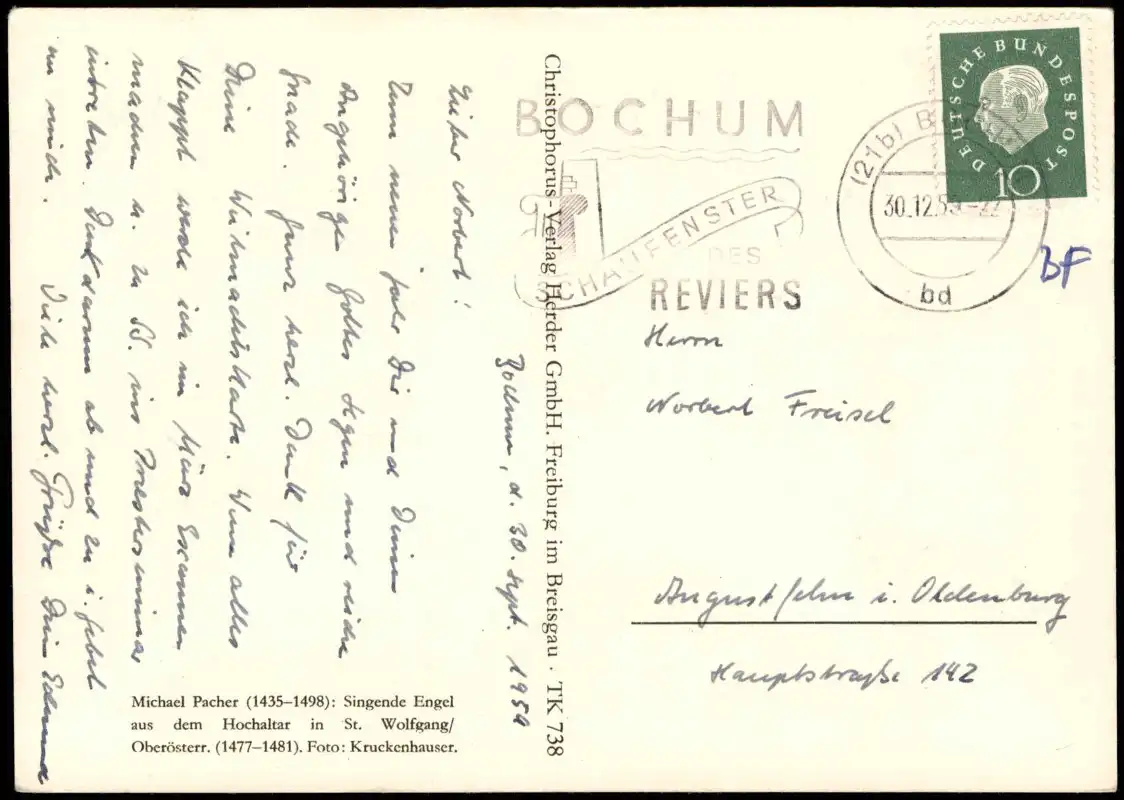 Bochum, d. 30. Sept. 1959
Lieber Norbert!
Zum neuen Jahr Dir und Deinen
Angehörigen Gottes Segen und reiche
Gnade. Ganz herzl. Dank für
Deine Weihnachtskarte. Wenn alles
klappt werde ich im März Examen
machen u. zu SS. ins Priesterseminar
eintreten. Denk darum ab und zu i. Gebet
an mich.
Viele herzl. Grüße Dein Edmund
Michael Pacher (1435–1498): Singende Engel
aus dem Hochaltar in St. Wolfgang/
Oberösterr. (1477–1481). Foto: Kruckenhauser.
Christophorus-Verlag Herder GmbH. Freiburg im Breisgau · TK 738
BOCHUM
SCHAUFENSTER
DES
REVIERS
(21b) B
30.12.59-22
bd
DEUTSCHE BUNDESPOST
10
BF
Herrn
Norbert Freisel
Augustfehn i. Oldenburg
Hauptstraße 142